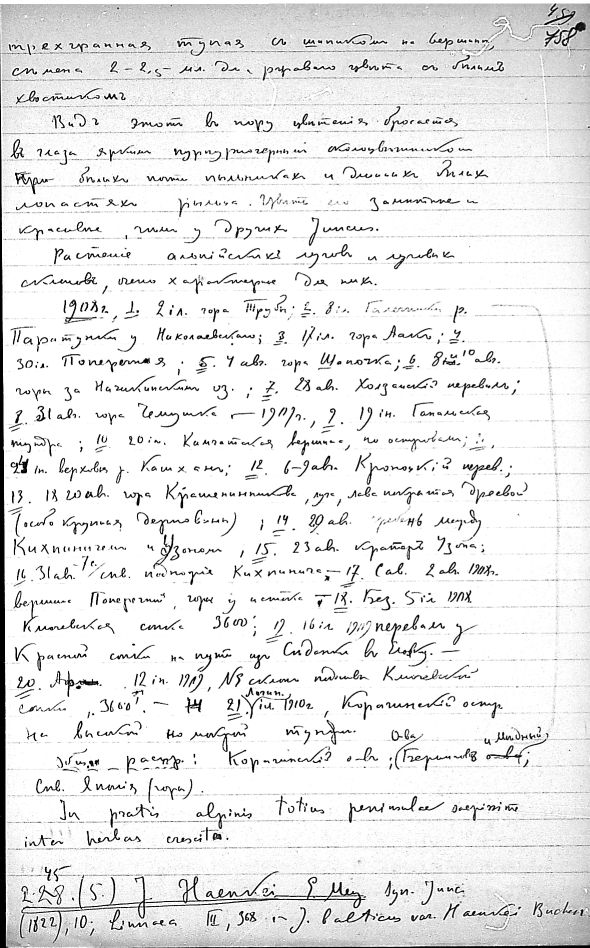 459
758
трехгранная тупая съ шипикомъ на вершинѣ,
сѣмена 2–2,5 мл. дл., ржаваго цвѣта съ бѣлымъ
хвостикомъ
Видъ этотъ въ пору цвѣтенія бросается
въ глаза яркимъ пурпурночернымъ околоцвѣтникомъ
При бѣлыхъ почти пыльникахъ и длинныхъ бѣлыхъ
лопастяхъ рыльца. Цвѣты его замѣтнѣе и
красивѣе, чѣмъ у другихъ Juncus.
Растеніе альпійскихъ луговъ и луговыхъ
склоновъ, очень характерное для нихъ.
1908г., 1. 2 іл. гора Трубы; 2. 8 іл. р.
Паратунки у Николаевскаго; 3. 17 іл. гора Аакъ; 4.
30 іл. Поперечная; 5. 4 авг. гора Шапочка; 6. 8 10 ав.
горы за Начикинскимъ оз.; 7. 28 ав. Холзанскій перевалъ;
8. 31 ав. гора Чемушка — 1909г., 9. 19 ін. Ганальская
тундра; 10. 20 ін. Камчатская вершина, по островамъ; 11.
24 ін. верховья р. Кашханъ; 12. 6–9 ав. Кроноцкій перев.;
13. 18 20 ав. гора Крашенинникова, луга, лава покрытая дресвой
(особо крупная дерновины); 14. 20 ав. гребень между
Кихпинычемъ и Узономъ, 15. 23 ав. кратеръ Узона;
16. 31 ав. 7 с. подножіе Кихпиныча. — 17. Сав. 2 ав. 1908г.
вершина Поперечной, горы у истока — 18. Без. 5 іл 1908
Ключевская сопка 3600'; 19. 16 іл 1909 перевалъ у
Красной сопки на пути изъ Седанки въ Еловку. —
20. 12 ін. 1909, склонъ подошвы Ключевской
сопки, 3600'. — 21. Логин. іл. 1910г., Карагинскій остр.
на высокой но мокрой тундрѣ.
Общ. распр.: Карагинскій о-въ; О-ва (Беринговъ и Мѣдный);
сѣв. Японія (горы).
In pratis alpinis totius peninsulae saepissime
inter herbas crescit.
45
228. (5.) J. Haenkei E. Mey. Syn. Junc.
(1822), 10; Linnaea III, 368 — J. balticus var. Haenkei Buchen.